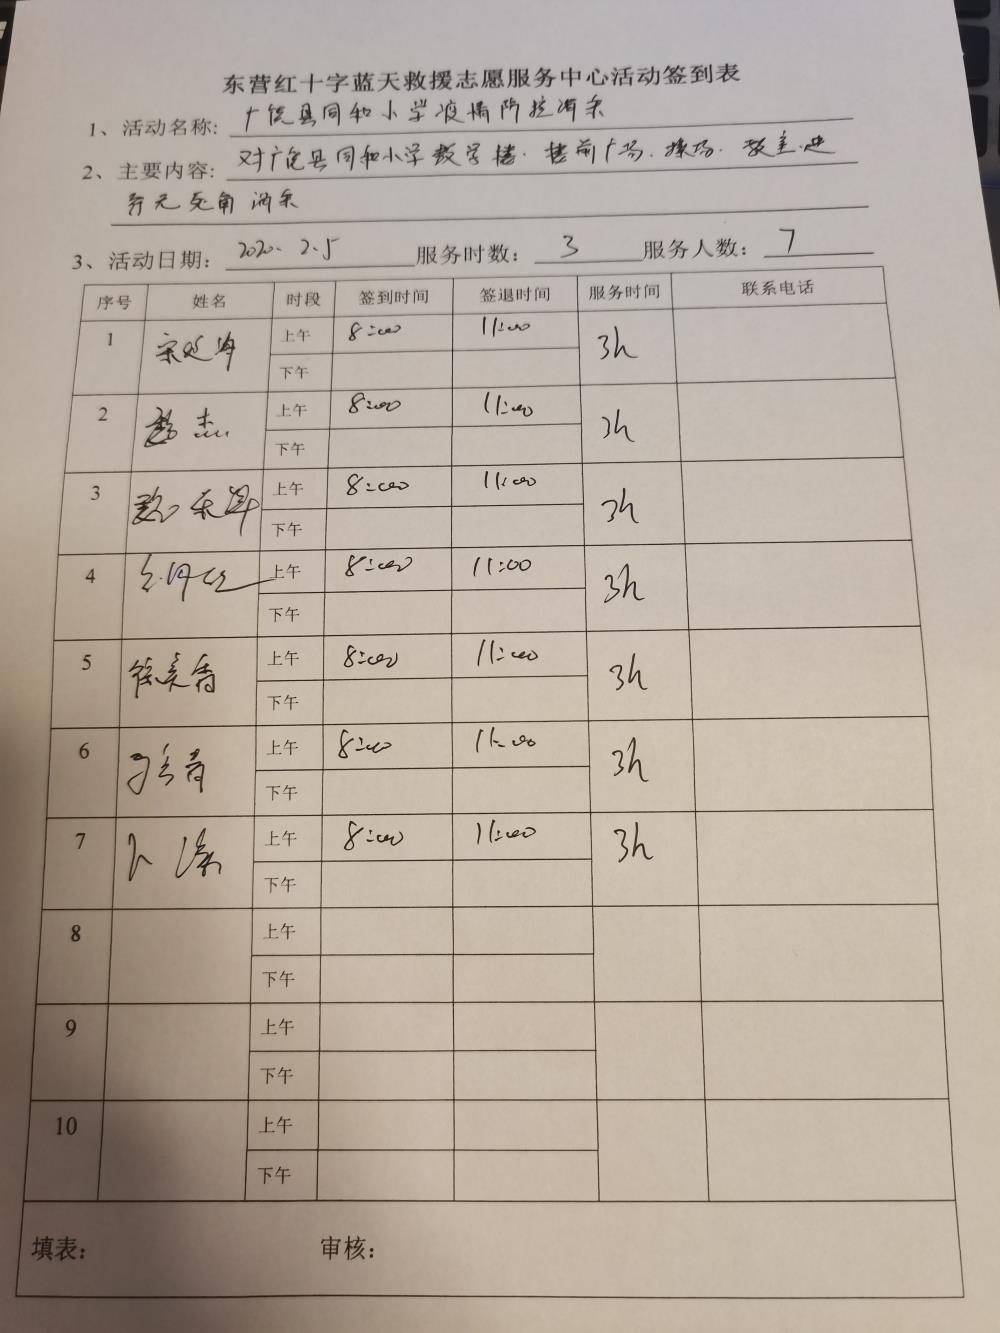 东营红十字蓝天救援志愿服务中心活动签到表
1、活动名称: 广饶县同和小学疫情防控消杀
2、主要内容: 对广饶县同和小学教学楼、楼前广场、操场、教室进
行无死角消杀
3、活动日期: 2020.2.5 服务时数: 3 服务人数: 7
序号 姓名 时段 签到时间 签退时间 服务时间 联系电话
1 上午 8:00 11:00 3h
下午
2 杰 上午 8:00 11:00 3h
下午
3 上午 8:00 11:00 3h
下午
4 上午 8:00 11:00 3h
下午
5 上午 8:00 11:00 3h
下午
6 上午 8:00 11:00 3h
下午
7 上午 8:00 11:00 3h
下午
8 上午
下午
9 上午
下午
10 上午
下午
填表: 审核: